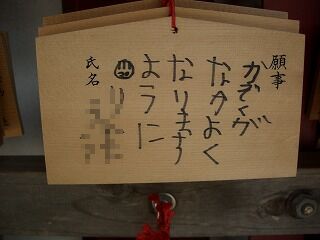 願事
かぞくが
なかよく
なりますう
ように
氏名